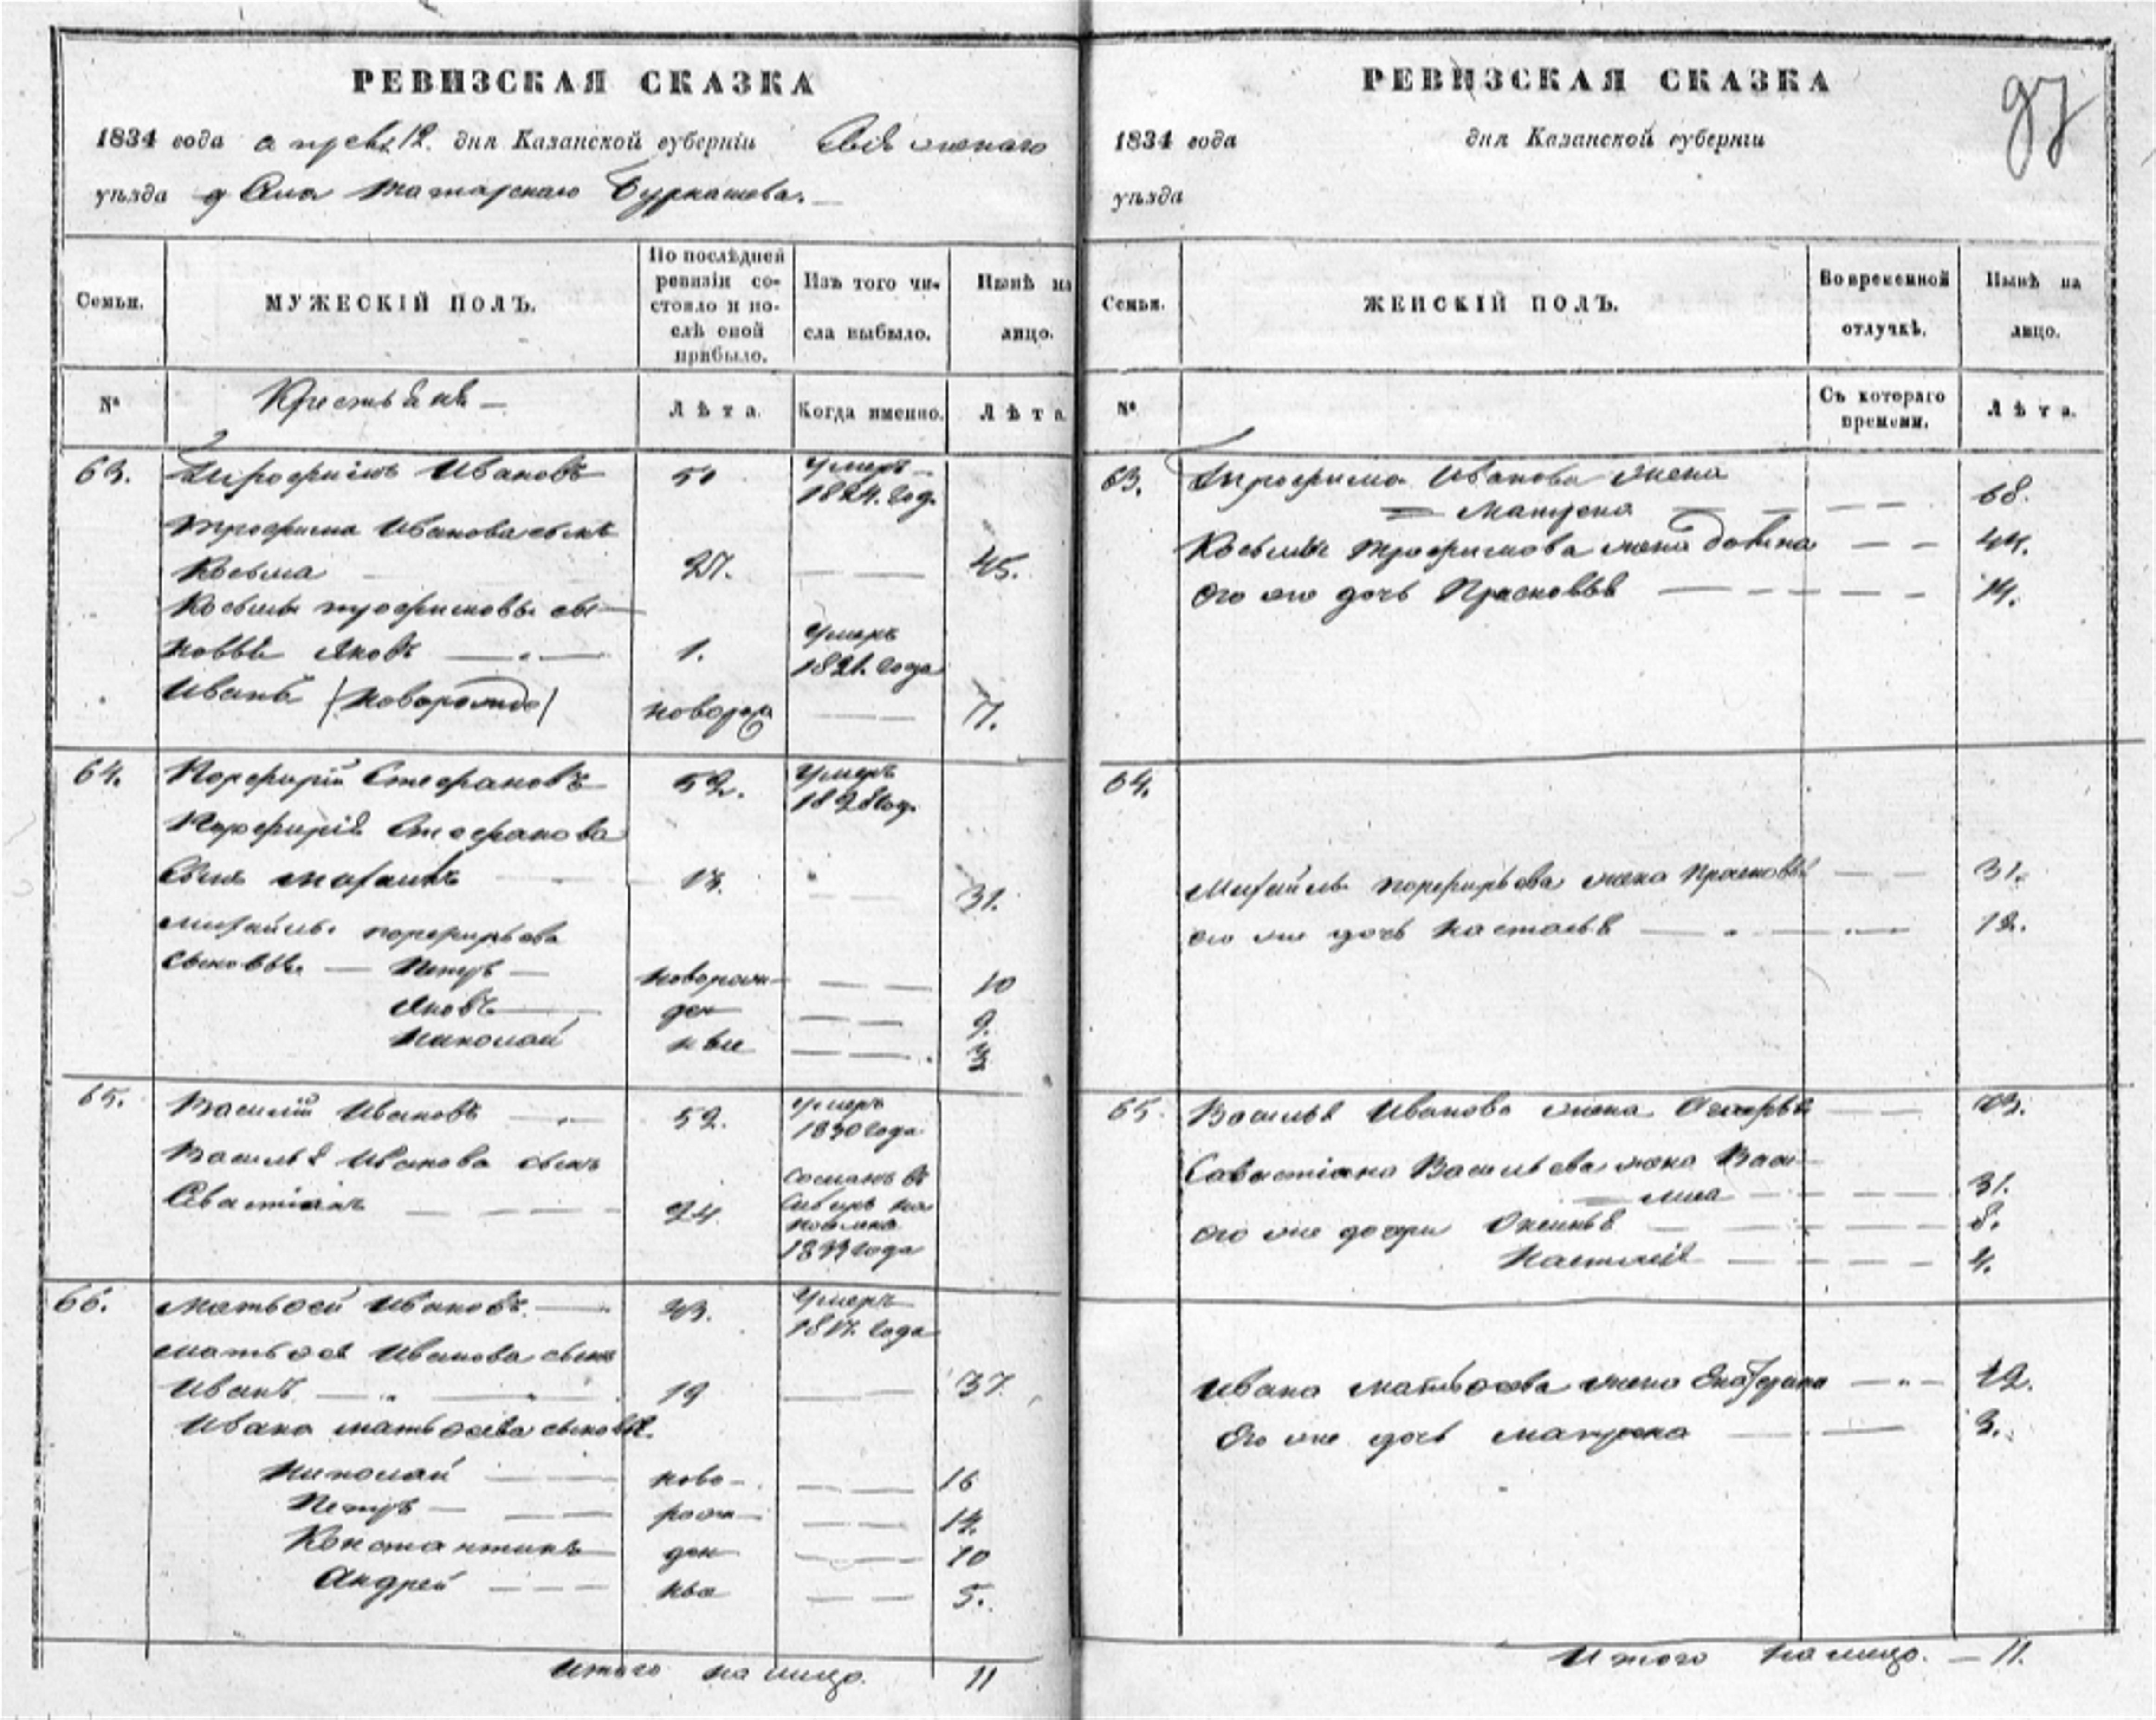 РЕВИЗСКАЯ СКАЗКА
1834 года апреля 12. дня Казанской губерніи Свіяжскаго
уѣзда Села Татарскаго Бурнашова.
Семьи.
МУЖЕСКІЙ ПОЛЪ.
По послѣдней
ревизіи со-
стояло и по-
слѣ оной
прибыло.
Изъ того чи-
сла выбыло.
Нынѣ на
лицо.
№
Крестьяне
Лѣта.
Когда именно.
Лѣта
63. Трофимъ Ивановъ 51 умеръ
1824. год.
Трофима Иванова сынъ
Косьма 27. 45.
Косьмы трофимовы сы-
новья Яковъ 1. умеръ
1821. года
Иванъ (новорожде) новорж 7.
64. Порфирій Стефановъ 52. умеръ
1828 год.
Порфирія Стефанова
Сынъ михаилъ 13. 31.
михайлы порфирьева
сыновья Петръ новорож- 10
Яковъ ден 9.
Николай ные 3
65. Василій Ивановъ 52. умеръ
1830 года
Василья Иванова сынъ
Севастіанъ 24. Сосланъ въ
Сибирь на
поселенье
1833 года
66. Матвей Ивановъ 43. умеръ
1817. года
матвея Иванова сынъ
Иванъ 19 37.
Ивана матвеева сыновья
Николай ново- 16
Петръ рож- 14.
Константинъ ден 10
Андрей ные 5.
Итого на лицо. 11
РЕВИЗСКАЯ СКАЗКА
97
1834 года дня Казанской губерніи
уѣзда
Семьи.
ЖЕНСКІЙ ПОЛЪ.
Во временной
отлучкѣ.
Нынѣ на
лицо.
№
Съ котораго
времени.
Лѣта.
63. Трофима Иванова жена
Матрена 68.
Косьмы Трофимова жена 44.
Его же дочь Прасковья 14.
64.
Михайлы порфирьева жена Прасковья 31.
его же дочь настасья 12.
65. Василья Иванова жена
Савастіана Васильева жена Васи-
лиса 31.
его же дочери Оксинья 8.
Настасья 4.
Ивана матвеева жена Екатерина 42.
Его же дочь матрена 3.
Итого на лицо. 11.